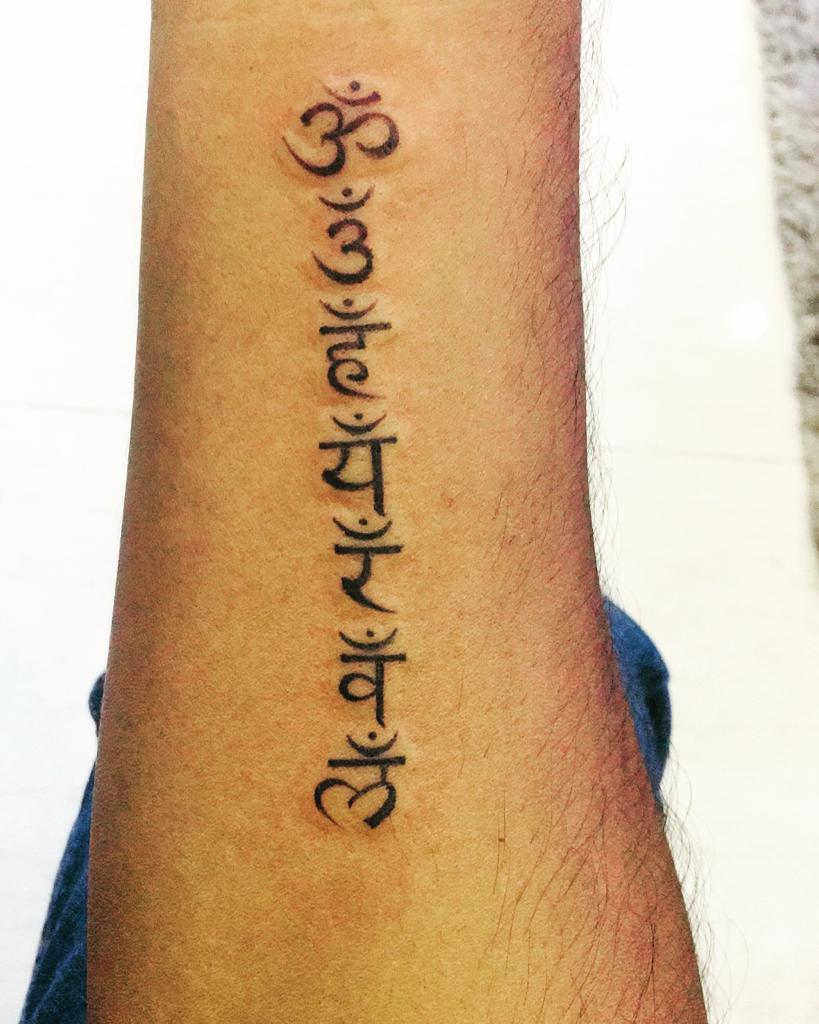 ॐ
उँ
हँ
यँ
रँ
वँ
लँ